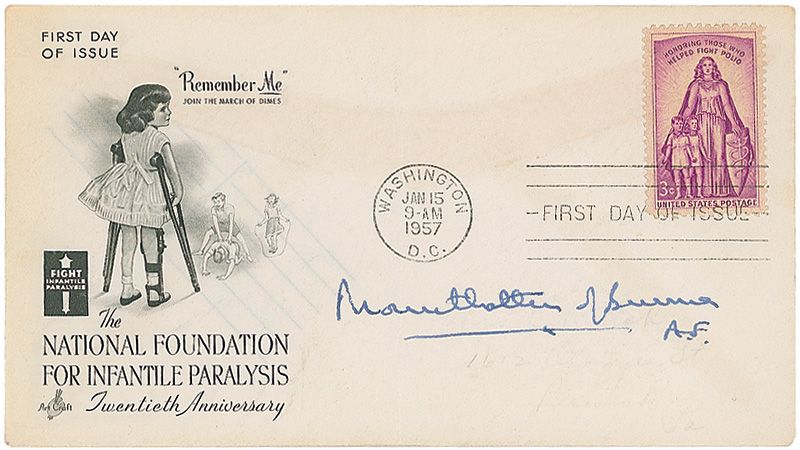 FIRST DAY
OF ISSUE
"Remember Me"
JOIN THE MARCH OF DIMES
HONORING THOSE WHO
HELPED FIGHT POLIO
3¢
UNITED STATES POSTAGE
WASHINGTON
JAN 15
9-AM
1957
D.C.
FIRST DAY OF ISSUE
FIGHT
INFANTILE
PARALYSIS
Mountbatten of Burma
A.F.
The
NATIONAL FOUNDATION
FOR INFANTILE PARALYSIS
Art Craft
Twentieth Anniversary